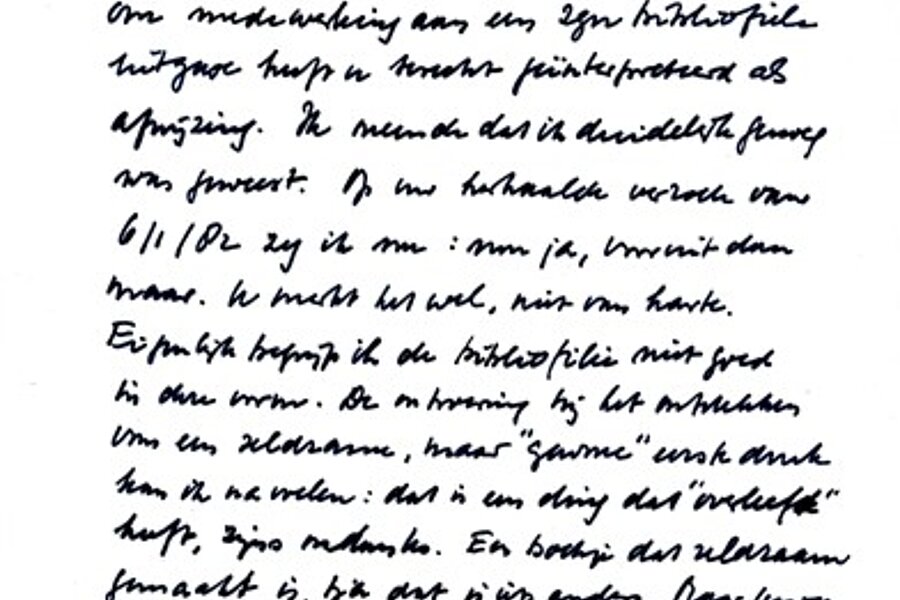 om medewerking aan een zgn bibliofiele
uitgave heeft u terecht geïnterpreteerd als
afwijzing. Ik meende dat ik duidelijk genoeg
was geweest. Op uw herhaalde verzoek van
6/1/82 zeg ik nu : nou ja, vooruit dan
maar. U merkt het wel, niet van harte.
Eigenlijk begrijp ik de bibliofilie niet goed
in deze vorm. De ontroering bij het ontdekken
van een zeldzame, maar "gewone" eerste druk
kan ik navoelen : dat is een ding dat "overleefd"
heeft, zijns ondanks. Een boekje dat zeldzaam
gemaakt is, tja dat is iets anders.